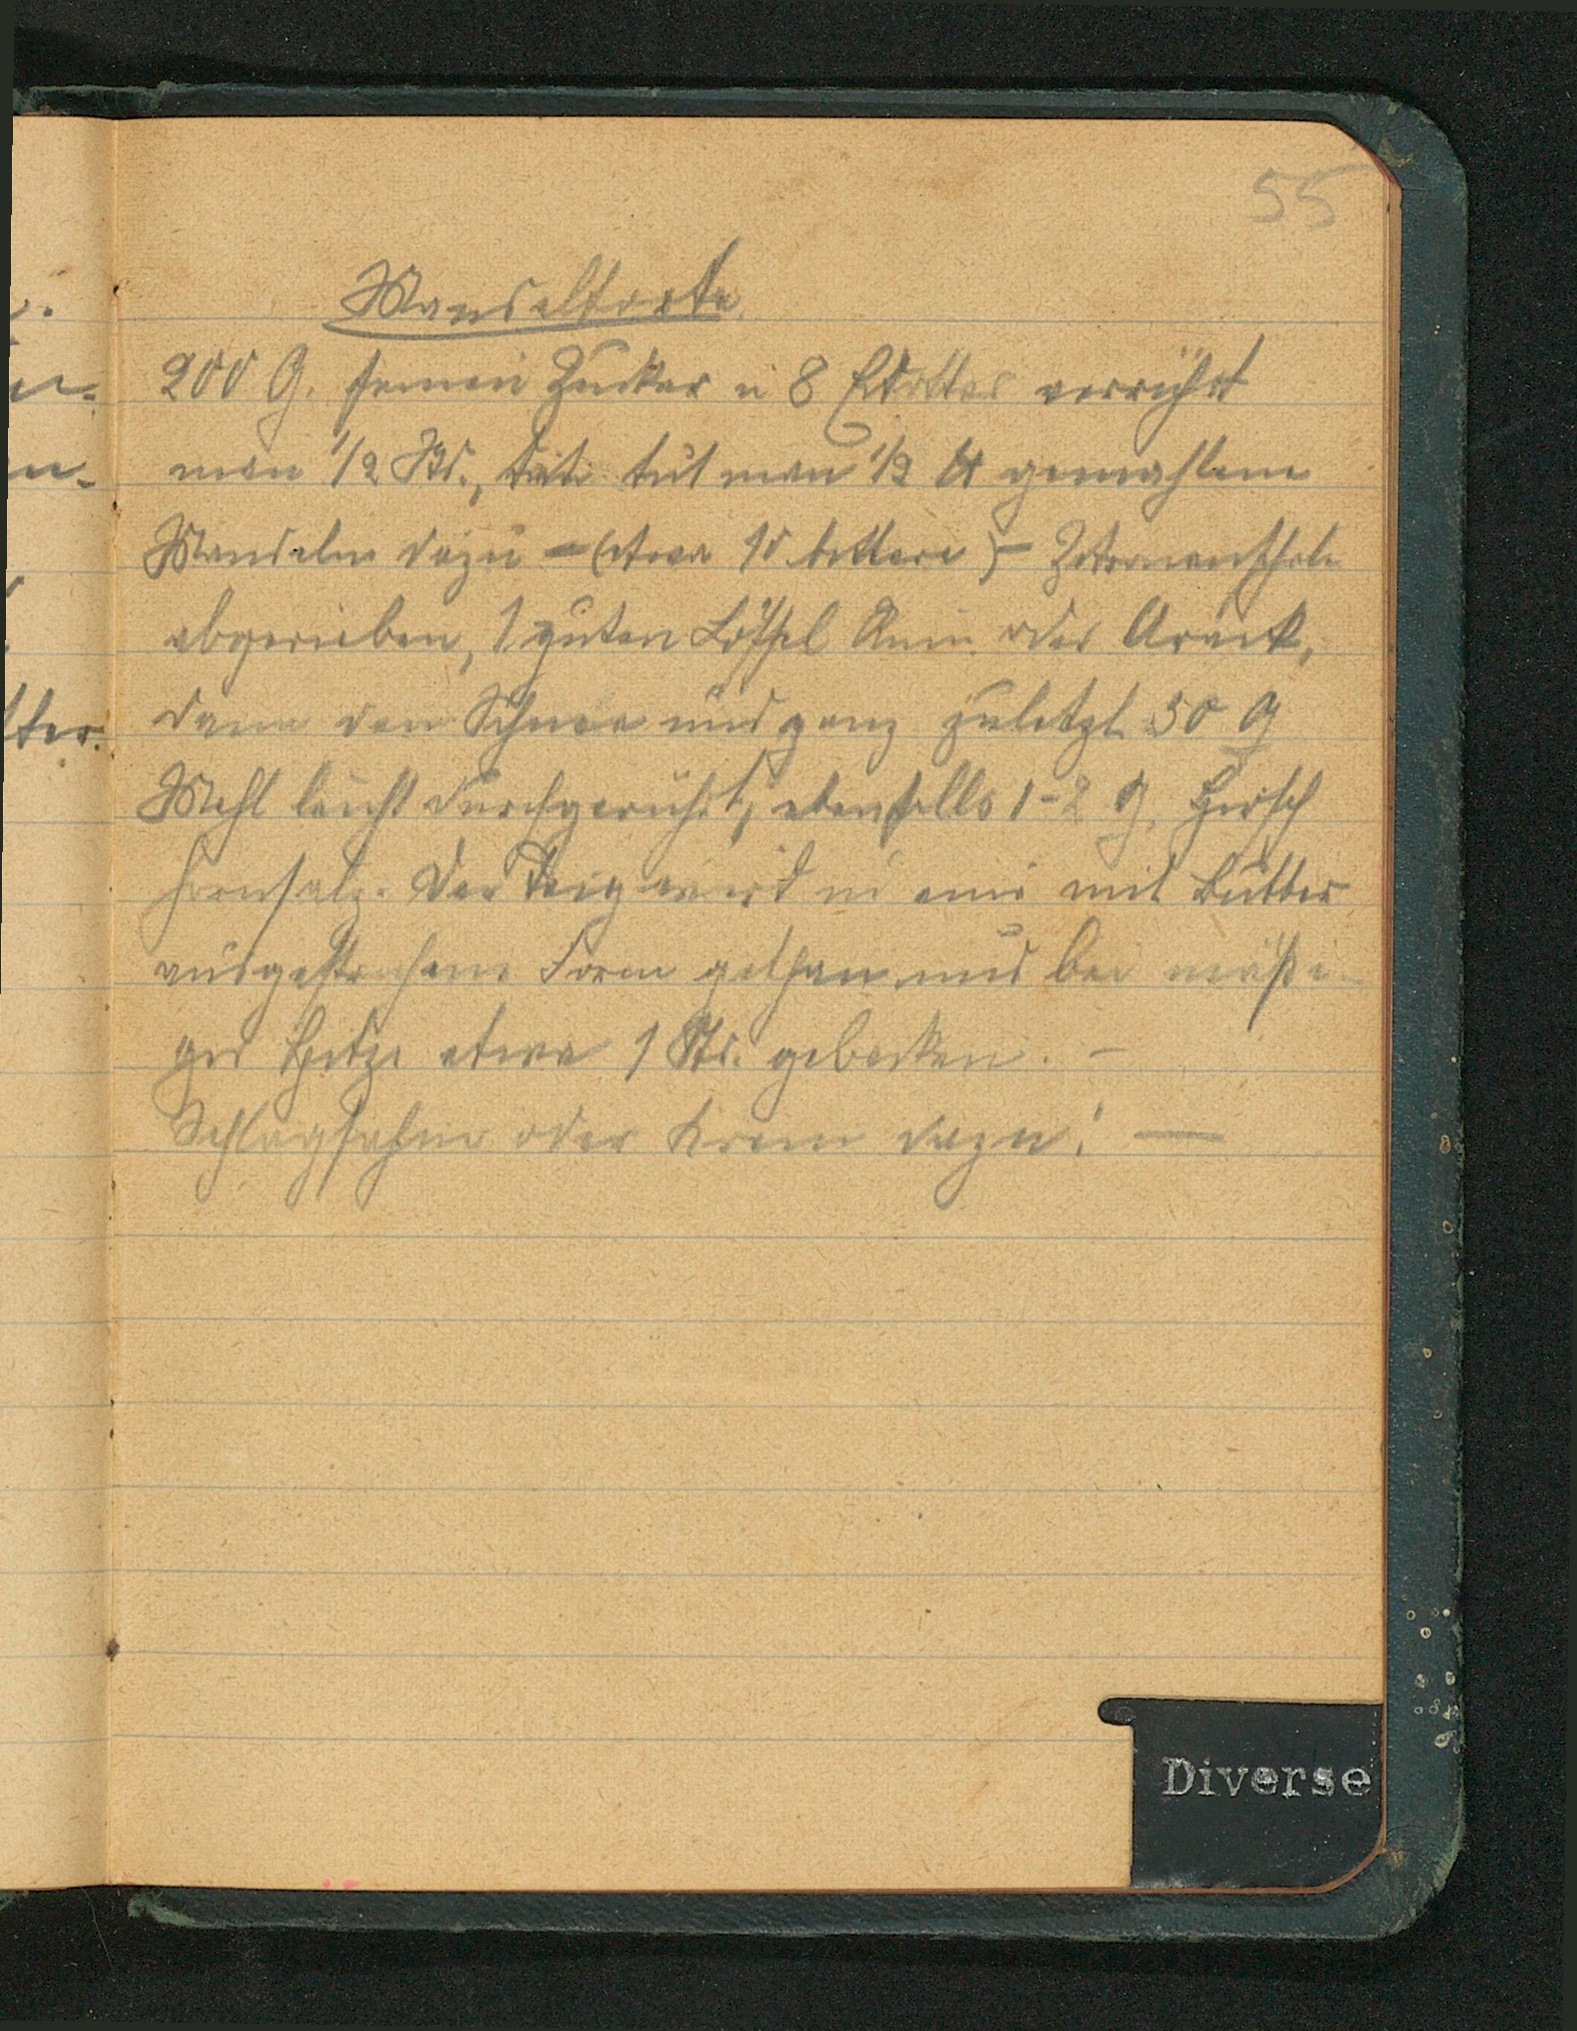 55
Mandeltorte.
200 G. feinen Zucker u 8 Eidotter verrührt
man 1/2 Std., tut man 1/2 ℔ gemahlene
Mandeln dazu – (etwa 10 bittere) – Zitronenschale
abgerieben, 1 guten Löffel Rum oder Arack,
dann den Schnee und ganz zuletzt 50 G
Mehl leicht durchgerührt, ebenfalls 1-2 G. Hirsch
hornsalz. Der Teig wird in eine mit Butter
ausgestrichene Form gethan und bei mäßi-
ger Hitze etwa 1 Std. gebacken. –
Schlagsahne oder Krem dazu! —
Diverse